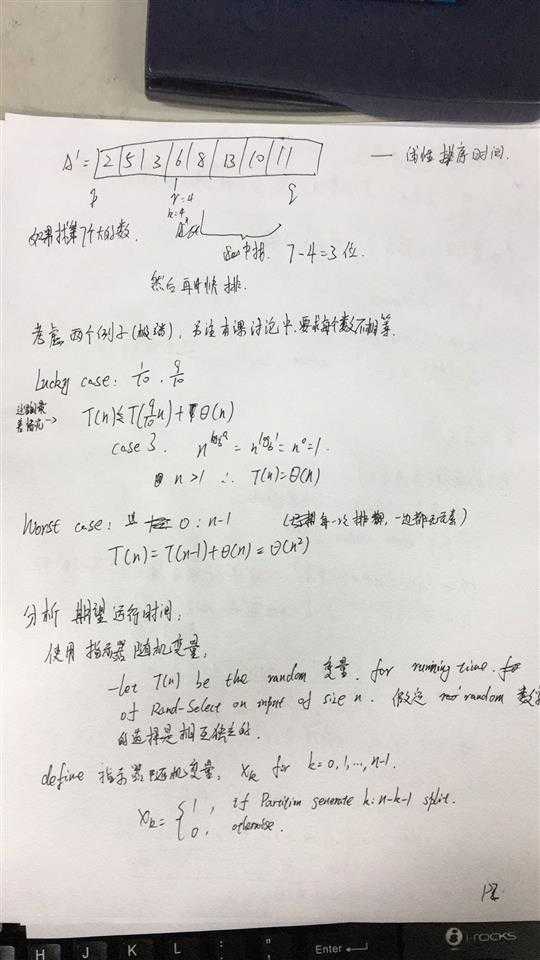 A' = 2 5 3 6 8 13 10 11 —— 线性排序时间.
p r=4 q
k=4
如果找第7个大的数. 中找. 7-4=3 位.
然后再中快排.
考虑两个例子(极端), 另注 本课讨论中, 要求每个数不相等.
Lucky case: 1/10 : 9/10
T(n) ≤ T(9/10 n) + Θ(n)
case 3. n^log_b^a = n^log_b^1 = n^0 = 1.
n > 1 ∴ T(n) = Θ(n)
Worst case: 0 : n-1 (每一次排, 一边都无元素)
T(n) = T(n-1) + Θ(n) = Θ(n²)
分析 期望运行时间:
使用指示器随机变量,
-let T(n) be the random 变量. for running time.
of Rand-Select on input of size n. 假定 random 数
的选择是相互独立的.
define 指示器随机变量, X_k for k=0,1,...,n-1.
X_k = { 1, if Partition generate k:n-k-1 split.
0, otherwise.
H J K L : ; " ' Enter
i-rocks